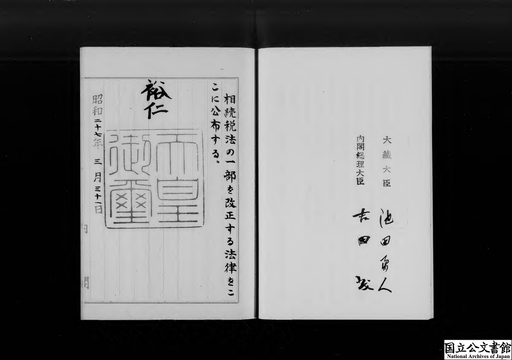 相続税法の一部を改正する法律をこ
こに公布する。
裕仁
天皇
御璽
昭和二十七年三月三十一日
大蔵大臣 池田勇人
内閣総理大臣 吉田茂
国立公文書館
National Archives of Japan